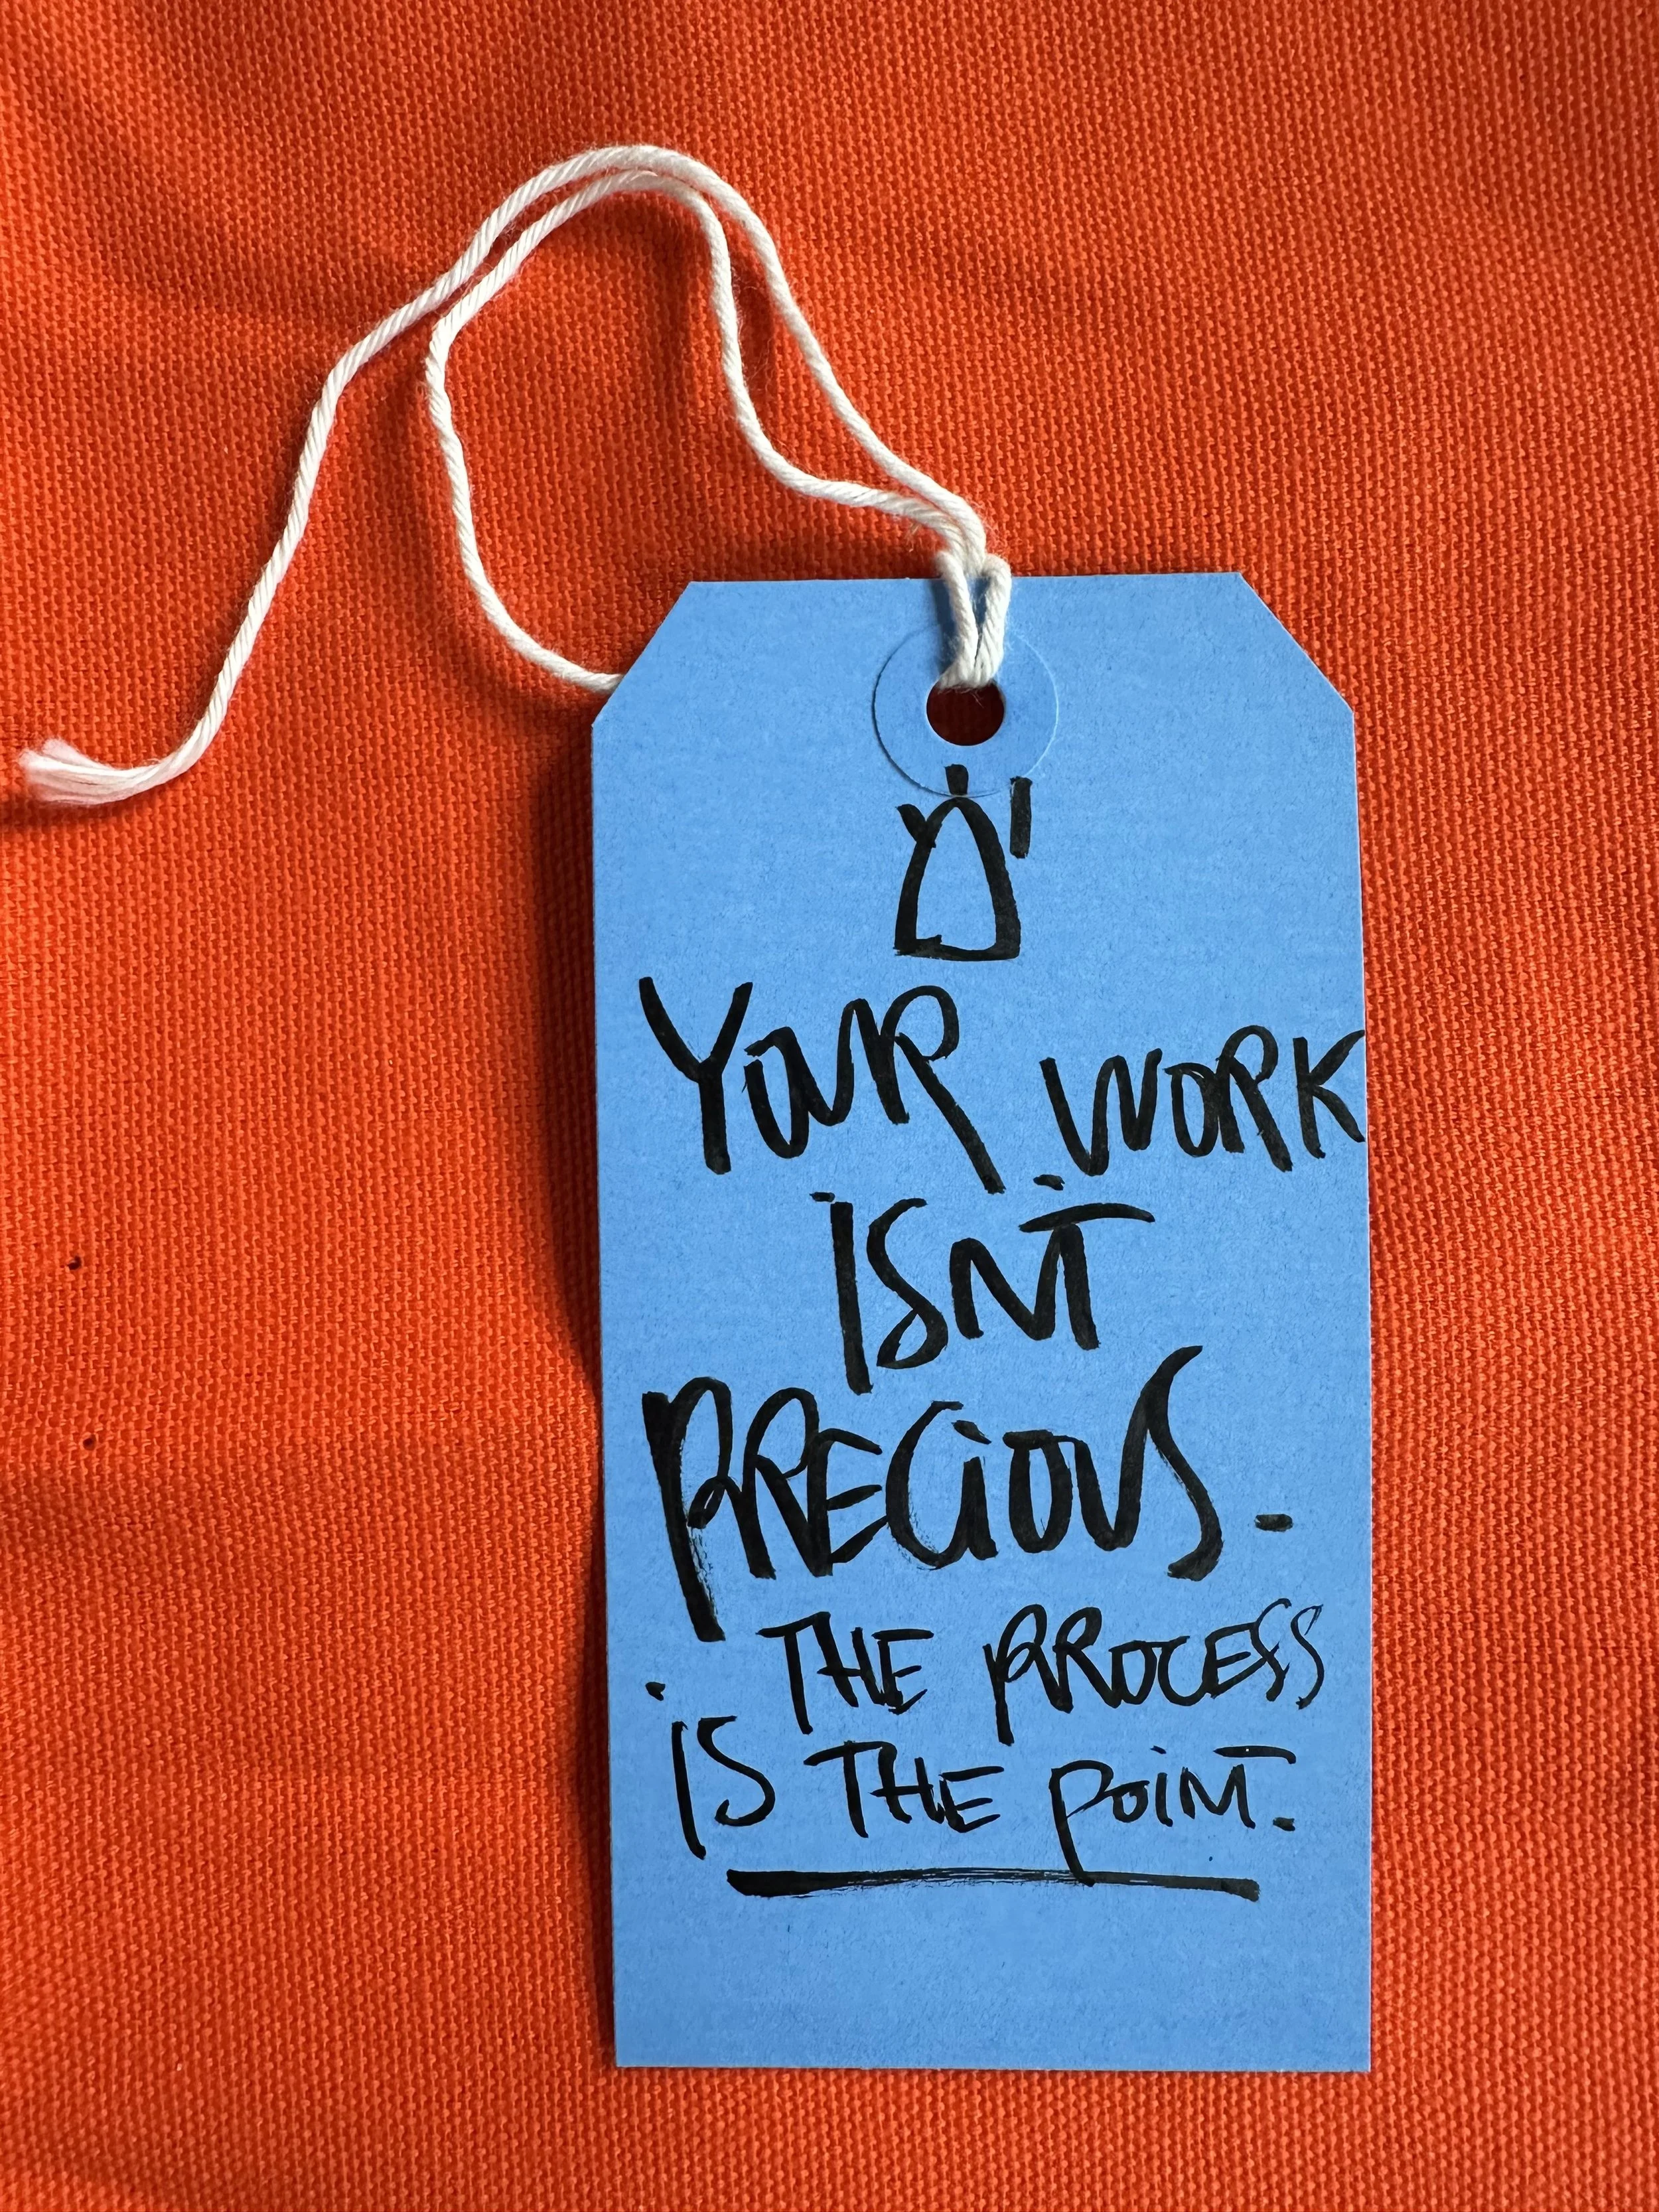 YOUR WORK
ISNT
PRECIOUS.
THE PROCESS
IS THE POINT.